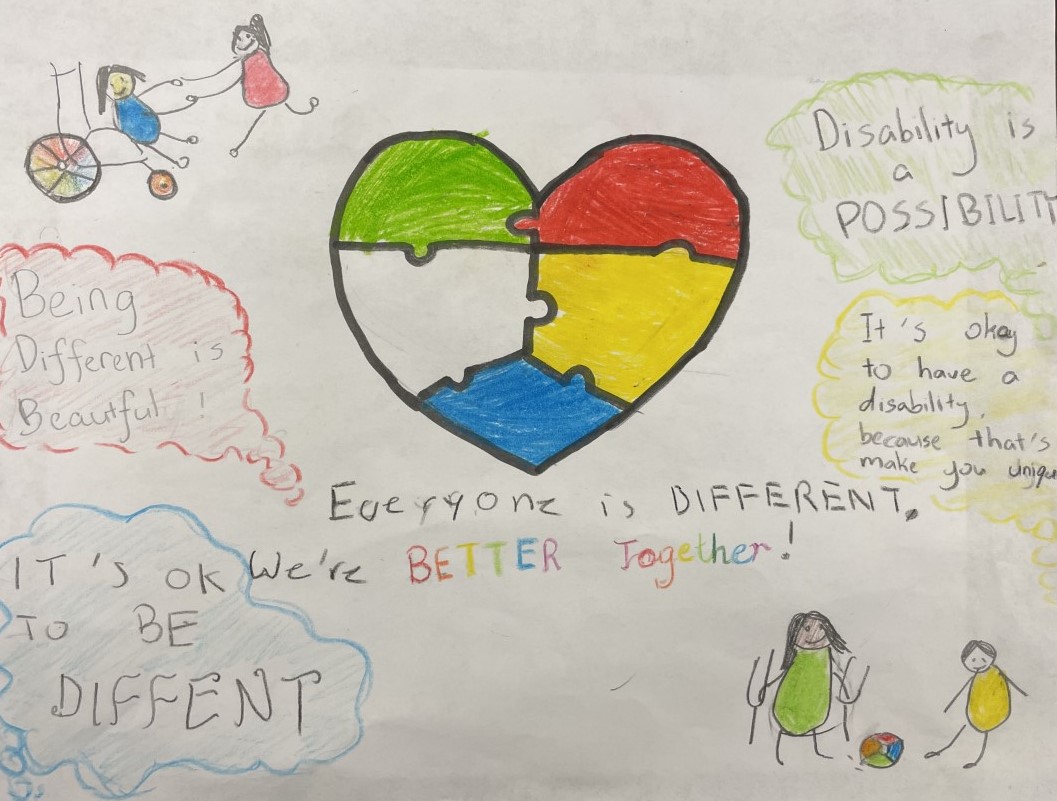 Disability is
a
POSSIBILIT
Being
Different is
Beautful !
It's okay
to have a
disability,
because that's
make you uniqu
Everyone is DIFFERENT.
We're BETTER Together!
IT'S OK
TO BE
DIFFENT